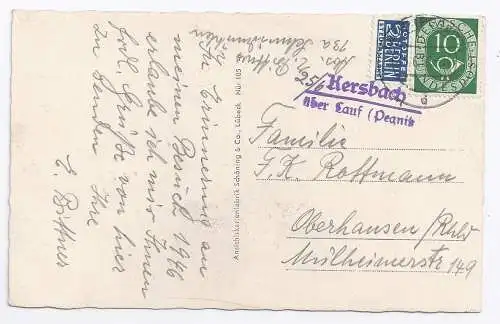 Zur Erinnerung an
meinen Besuch 1946
erlaube ich mir Ihnen
frdl. Grüße von hier
zu senden. Ihre
E. Bittner
Abs. E. Bittner
13a
Ansichtskartenfabrik Schöning & Co., Lübeck
Nür 105
Kersbach
über Lauf (Pegnitz
NOTOPFER
2 BERLIN
STEUERMARKE
DEUTSCHE
10
BUNDESPOST
d
Familie
G. K. Rottmann
Oberhausen/Rhld
Mülheimerstr 149